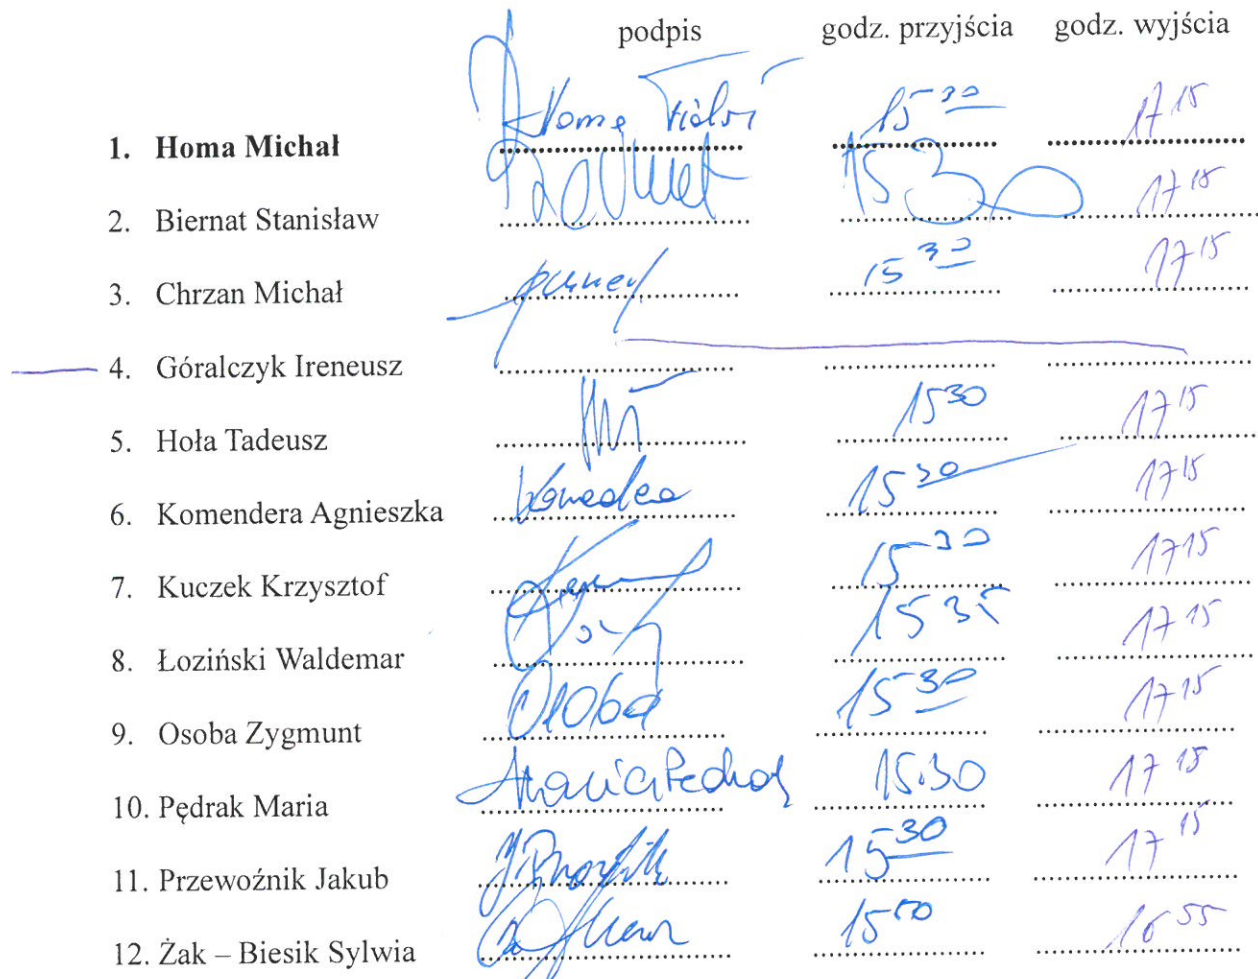 podpis godz. przyjścia godz. wyjścia
1. Homa Michał 15 30 17 15
2. Biernat Stanisław 15 30 17 15
3. Chrzan Michał 15 30 17 15
4. Góralczyk Ireneusz
5. Hoła Tadeusz 15 30 17 15
6. Komendera Agnieszka 15 30 17 15
7. Kuczek Krzysztof 15 30 17 15
8. Łoziński Waldemar 15 35 17 15
9. Osoba Zygmunt Osoba 15 30 17 15
10. Pędrak Maria Maria Pędrak 15.30 17 15
11. Przewoźnik Jakub 15 30 17 15
12. Żak – Biesik Sylwia 15 50 16 55